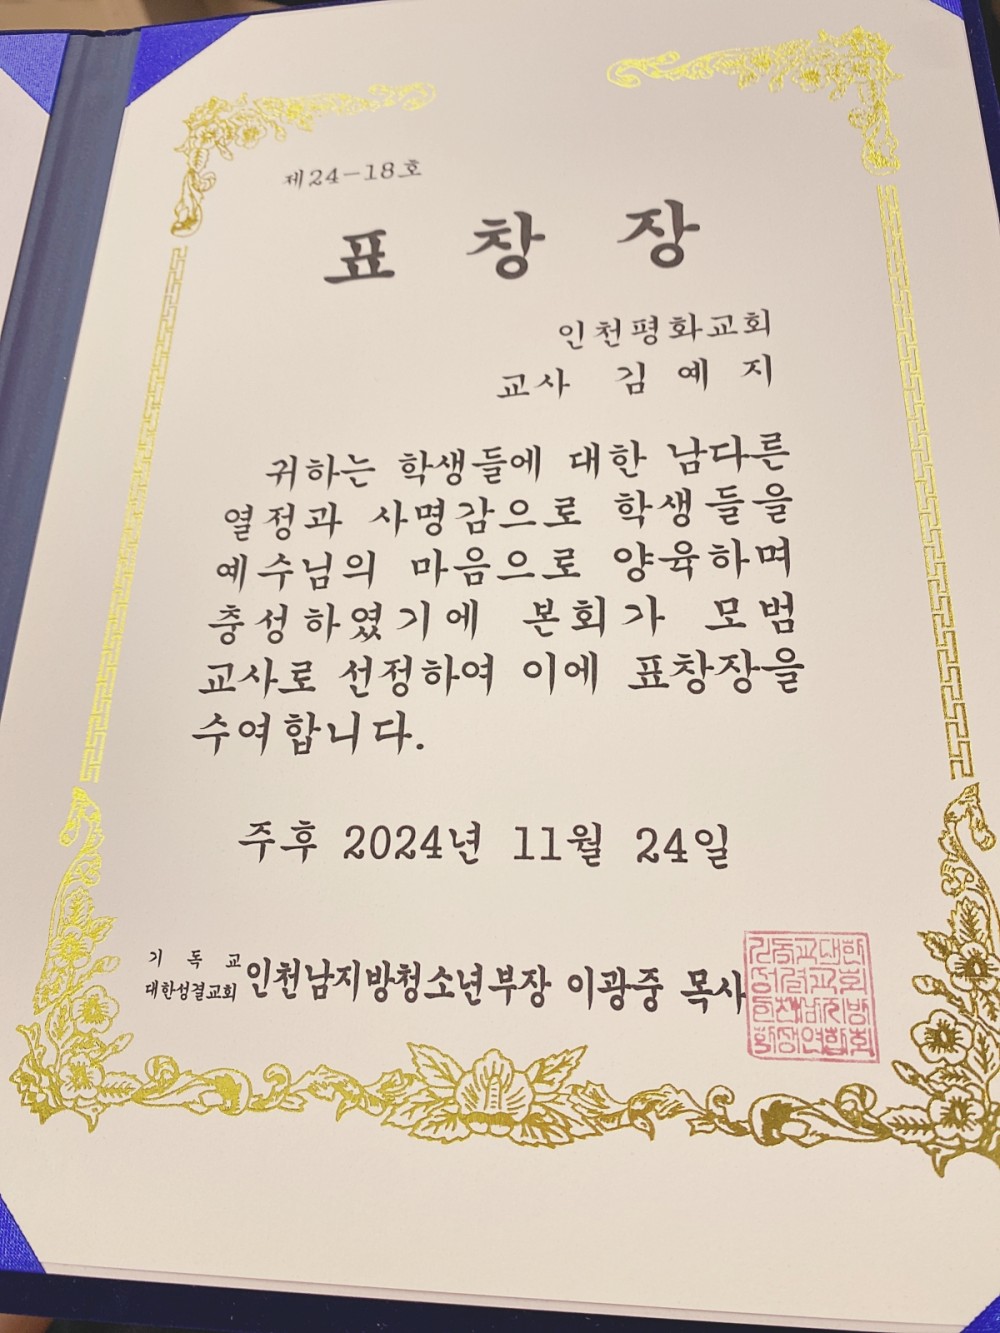 제24-18호
표 창 장
인천평화교회
교사 김 예 지
귀하는 학생들에 대한 남다른
열정과 사명감으로 학생들을
예수님의 마음으로 양육하며
충성하였기에 본회가 모범
교사로 선정하여 이에 표창장을
수여합니다.
주후 2024년 11월 24일
기 독 교
대한성결교회 인천남지방청소년부장 이광중 목사